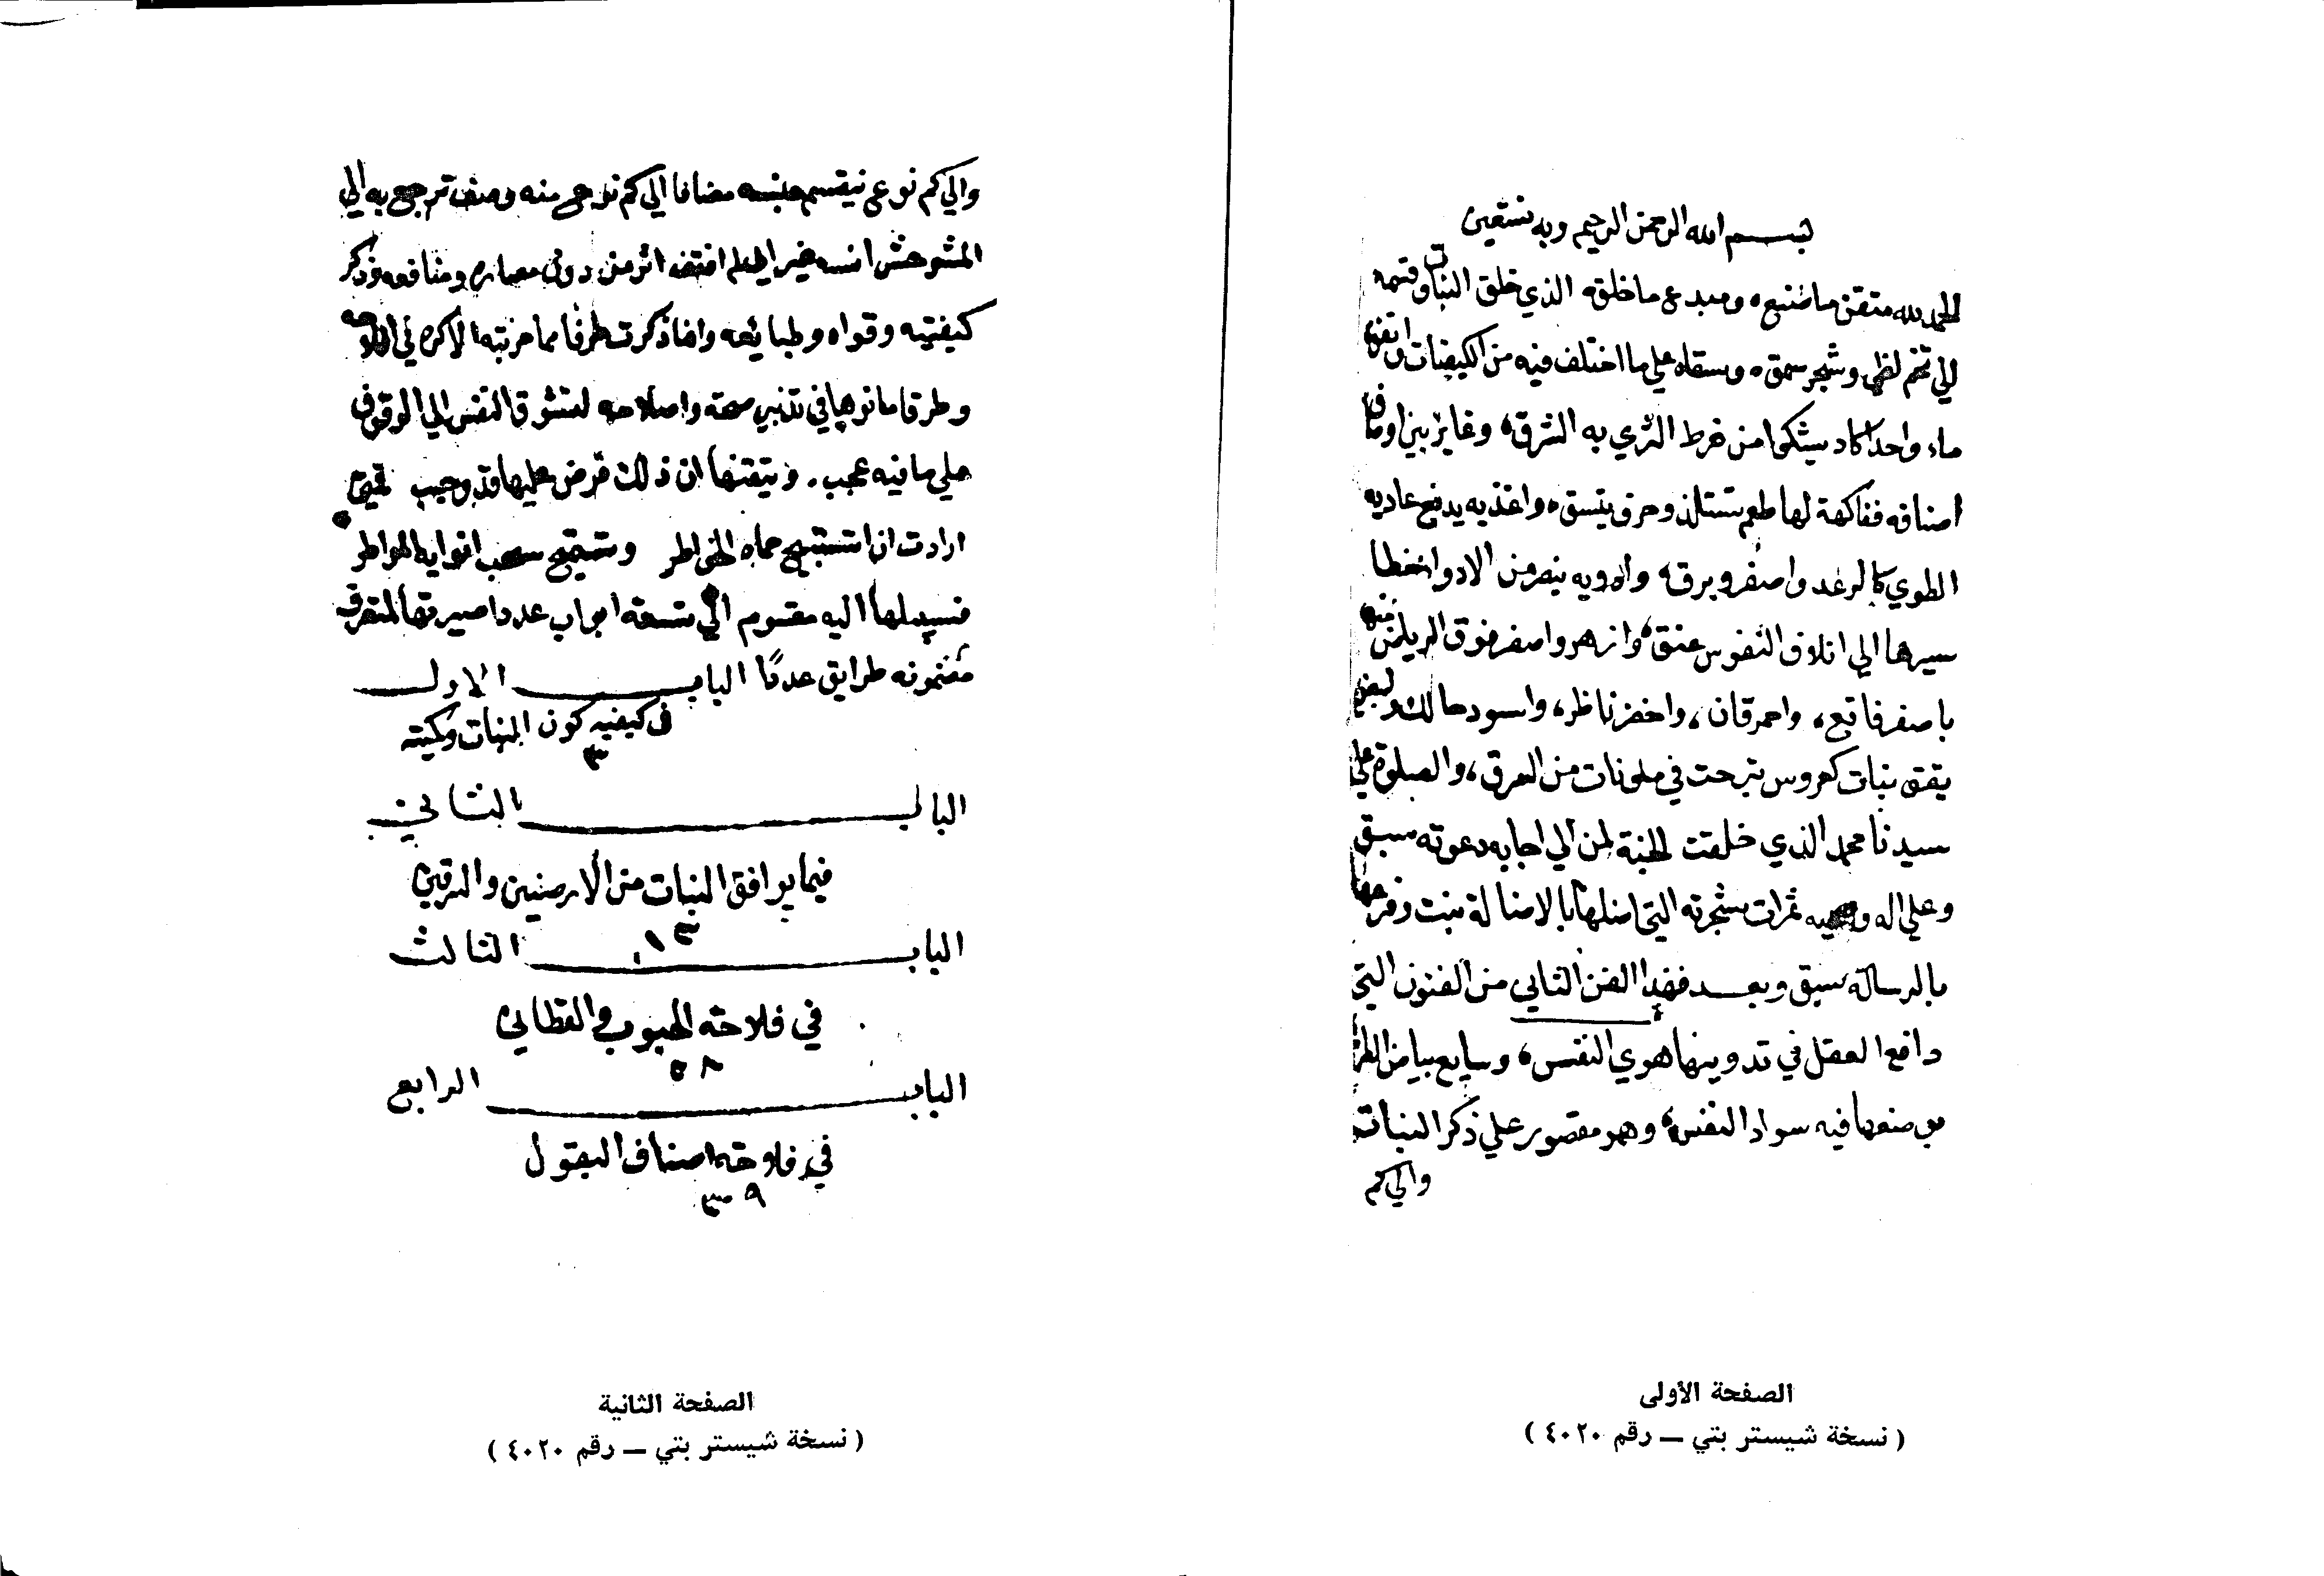 بسم الله الرحمن الرحيم وبه نستعين
الحمد لله متقن ما صنعه ومبدع ما خلقه الذي خلق النبات وقسمه
الي نجم لطي وشجر سمق وسقاه علي ما اختلف فيه من الكيفيات
ماء واحدا كاد يشكوا من فرط الثري به الشرق وغاير بين
اصنافه ففاكهة لها طعم تستلذ وعرف ينتشق واغذيه يدفع عاديه
الطوي كالرعد واصفر وبرق وادويه ينصر من الادوا
سيرها الي اتلاف النفوس عنق وازهر واصفر فوق الرياض
باصفر فاقع واحمر قان واخضر ناظر واسود حالك
يقق نبات كعروس تبرجت في ملونات من السرق والصلوة علي
سيدنا محمد الذي خلقت الجنة لمن الي اجابه دعوته سبق
وعلي اله وصحبه ثمرات شجرته التي اصلها بالاصالة نبت وفرعها
بالرسالة سبق وبعد فهذا الفن الثاني من الفنون التي
دافع العقل في تدوينها هوي النفس وسايع بياض
صنعها فيه سواد النفس وهو مقصور علي ذكر النبات
والي كم
الصفحة الأولى
( نسخة شيستر بتي — رقم ٤٠٢٠ )
والي كم نوع ينقسم جنسه مضافا الي كم نوع منه وصنف ترجع به الي
المتوحش انسه غير اني لم اقتف اثر من دون مضاره ومنافعه وذكر
كيفيته وقواه وطبائعه وانما ذكرت طرفا مما جربته الاكره في فلاحه
وطرفا مما نوها في تدبير صحته واصلاحه لتشوق النفس الي الوقوف
علي ما فيه عجب . وتيقنها ان ذلك فرض عليها قد وجب فمتي
ارادت ان تستبيح حماه الخواطر وتستميح سحب انوايه المواطر
فسبيلها اليه مقسوم الي تسعة ابواب عددا صيرتها لمتفرق
مضمونه طرايق عددا الباب الاول
في كيفيه كون النبات وكميته
٣
الباب الثاني
فيما يوافق النبات من الارضين والسرقين
١٣
الباب الثالث
في فلاحة الحبوب والقطاني
٥٨
الباب الرابع
في فلاحة اصناف البقول
٩٣
الصفحة الثانية
( نسخة شيستر بتي — رقم ٤٠٢٠ )